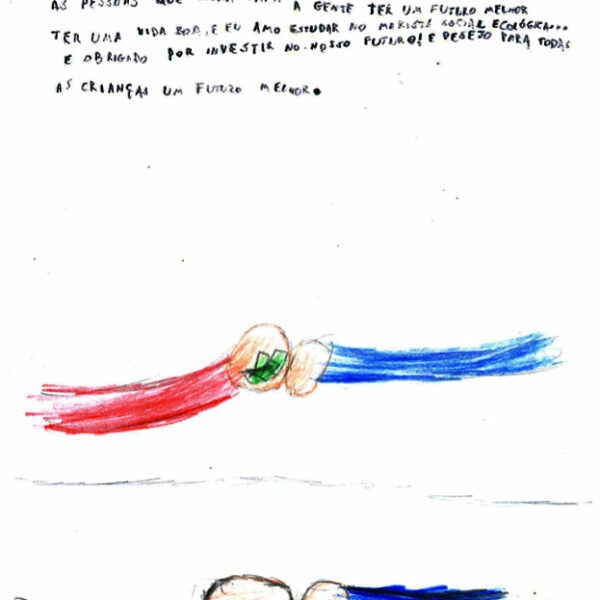 AS PESSOAS QUE A GENTE TER UM FUTURO MELHOR
TER UMA VIDA BOA, E EU AMO ESTUDAR NO MARISTA SOCIAL ECOLÓGICA...
E OBRIGADO POR INVESTIR NO NOSSO FUTURO! E DESEJO PARA TODAS
AS CRIANÇAS UM FUTURO MELHOR.